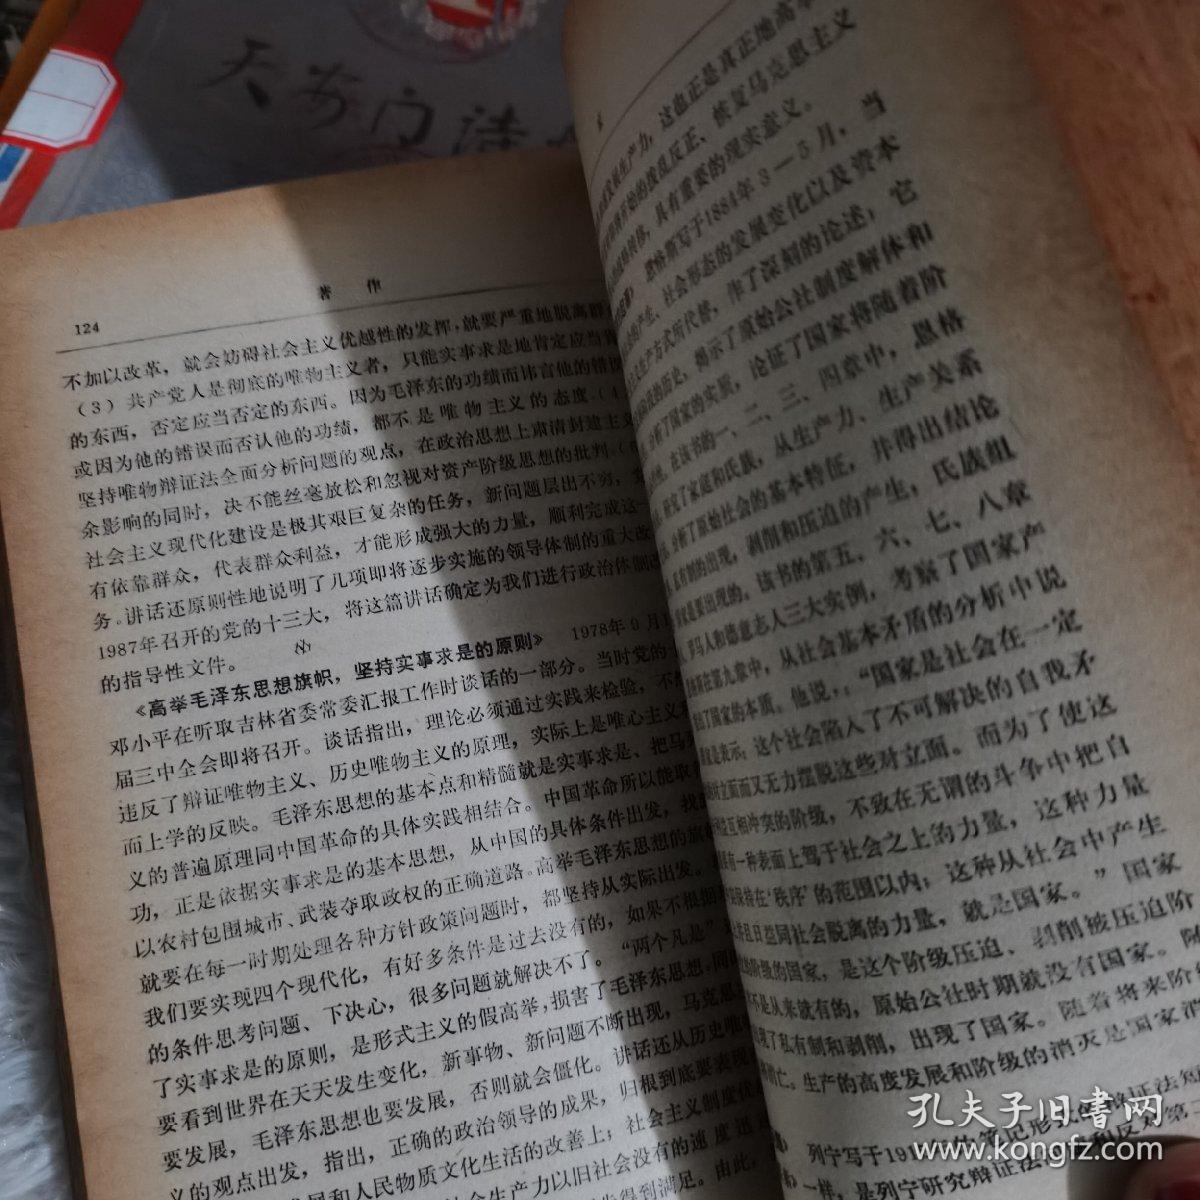 天安门诗
124
著 作
不加以改革，就会妨碍社会主义优越性的发挥，就要严重地脱离群
（3）共产党人是彻底的唯物主义者，只能实事求是地肯定应当肯
的东西，否定应当否定的东西。因为毛泽东的功绩而讳言他的错误
或因为他的错误而否认他的功绩，都不是唯物主义的态度。（4
坚持唯物辩证法全面分析问题的观点，在政治思想上肃清封建主义
余影响的同时，决不能丝毫放松和忽视对资产阶级思想的批判。
社会主义现代化建设是极其艰巨复杂的任务，新问题层出不穷，
有依靠群众，代表群众利益，才能形成强大的力量，顺利完成这一
务。讲话还原则性地说明了几项即将逐步实施的领导体制的重大改
1987年召开的党的十三大，将这篇讲话确定为我们进行政治体制改
的指导性文件。
《高举毛泽东思想旗帜，坚持实事求是的原则》 1978年9月1
邓小平在听取吉林省委常委汇报工作时谈话的一部分。当时党的
届三中全会即将召开。谈话指出，理论必须通过实践来检验，不
违反了辩证唯物主义、历史唯物主义的原理，实际上是唯心主义
而上学的反映。毛泽东思想的基本点和精髓就是实事求是、把马
义的普遍原理同中国革命的具体实践相结合。中国革命所以能取
功，正是依据实事求是的基本思想，从中国的具体条件出发，找
以农村包围城市、武装夺取政权的正确道路。高举毛泽东思想的旗
就要在每一时期处理各种方针政策问题时，都坚持从实际出发。
我们要实现四个现代化，有好多条件是过去没有的，如果不根据
的条件思考问题、下决心，很多问题就解决不了。“两个凡是”
了实事求是的原则，是形式主义的假高举，损害了毛泽东思想。同
要看到世界在天天发生变化，新事物、新问题不断出现，马克思
要发展，毛泽东思想也要发展，否则就会僵化。讲话还从历史唯
义的观点出发，指出，正确的政治领导的成果，归根到底要表现
展和人民物质文化生活的改善上；社会主义制度优
会生产力以旧社会没有的速度迅
步得到满足。由此，
发展生产力，这也正是真正地高举
的拨乱反正、恢复马克思主义
转移，具有重要的现实意义。
恩格斯写于1884年3—5月，当
产生、社会形态的发展变化以及资本
生产方式所代替，作了深刻的论述；它
的历史，揭示了原始公社制度解体和
分析了国家的实质，论证了国家将随着阶
在该书的一、二、三、四章中，恩格
研究了家庭和氏族，从生产力、生产关系
分析了原始社会的基本特征，并得出结论
私有制的出现，剥削和压迫的产生，氏族组
是要出现的。该书的第五、六、七、八章
罗马人和德意志人三大实例，考察了国家产
在第九章中，从社会基本矛盾的分析中说
了国家的本质。他说：“国家是社会在一定
表示：这个社会陷入了不可解决的自我矛
对立面而又无力摆脱这些对立面。而为了使这
互相冲突的阶级，不致在无谓的斗争中把自
有一种表面上驾于社会之上的力量，这种力量
保持在‘秩序’的范围以内；这种从社会中产生
且日益同社会脱离的力量，就是国家。”国家
阶级的国家，是这个阶级压迫、剥削被压迫阶
不是从来就有的，原始公社时期就没有国家。随
现了私有制和剥削，出现了国家。随着将来阶
亡。生产的高度发展和阶级的消灭是国家消
列宁写于191
一样，是列宁研究辩证法
孔夫子旧书网
www.kongfz.com